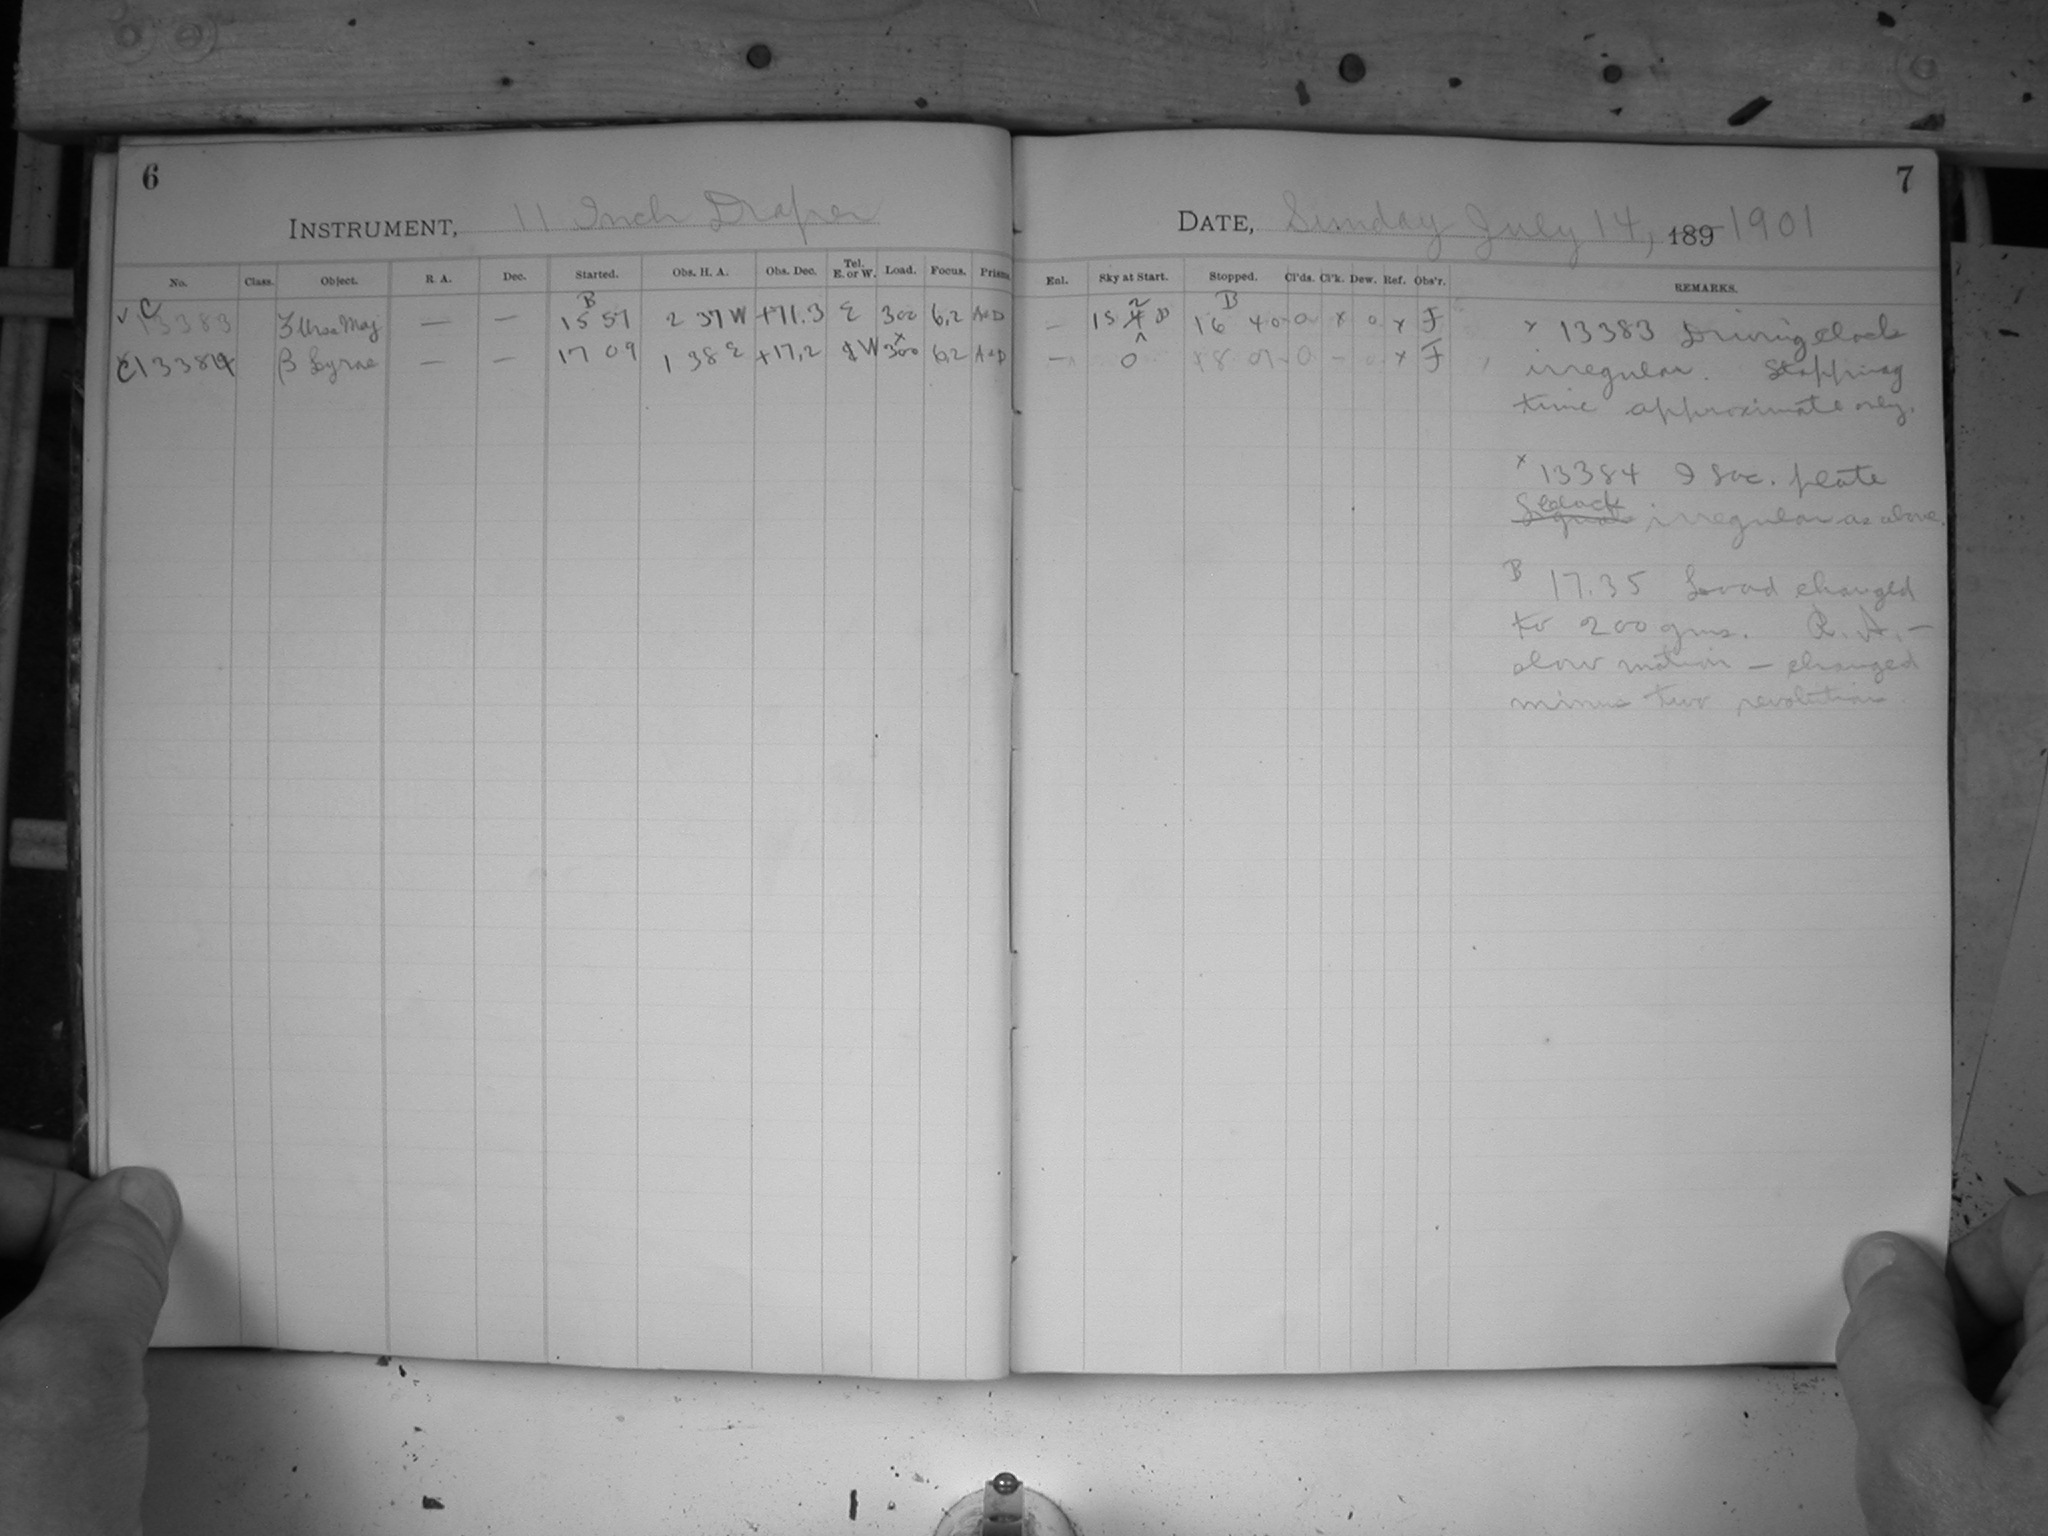 6
INSTRUMENT, 11 Inch Draper
No. Class. Object. R A. Dec. Started. Obs. H. A. Obs. Dec. Tel. E. or W. Load. Focus. Prisms
√ C 13383 ζ Ursa Maj — — B 15 57 2 37 W +71.3 E 300 6.2 A+D
C13384 β Lyrae — — 17 09 1 38 E +17.2 W 300 x 6.2 A+D
7
DATE, Sunday July 14, 189 1901
Enl. Sky at Start. Stopped. Cl'ds. Cl'k. Dew. Ref. Obs'r. REMARKS.
— 15 2 B 16 40 0 x 0 x F
— 0 18 01 0 — 0 x F
x 13383 Driving clock
irregular. Stopping
time approximate only.
x 13384 I Soc. plate
clock irregular as above.
B 17.35 Load changed
to 200 gms. R. A. —
slow motion — changed
minus two revolutions.